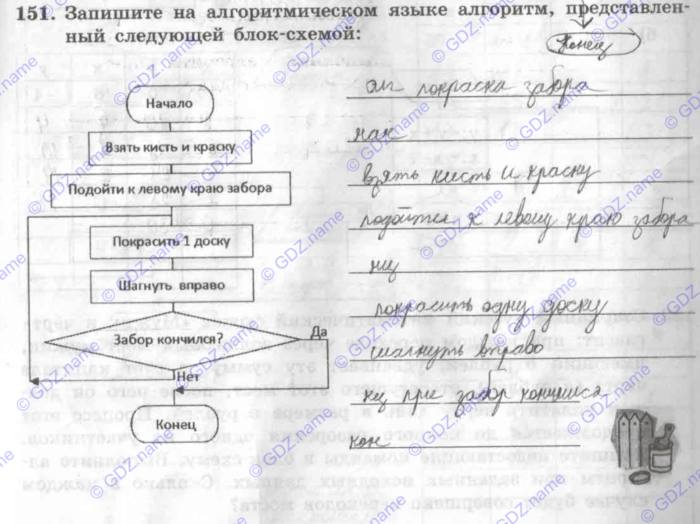 151. Запишите на алгоритмическом языке алгоритм, представлен-
ный следующей блок-схемой:
Конец
Начало
Взять кисть и краску
Подойти к левому краю забора
Покрасить 1 доску
Шагнуть вправо
Забор кончился?
Да
Нет
Конец
алг покраска забора
нач
взять кисть и краску
подойти к левому краю забора
нц
покрасить одну доску
шагнуть вправо
кц при забор кончился
кон
© GDZ.name